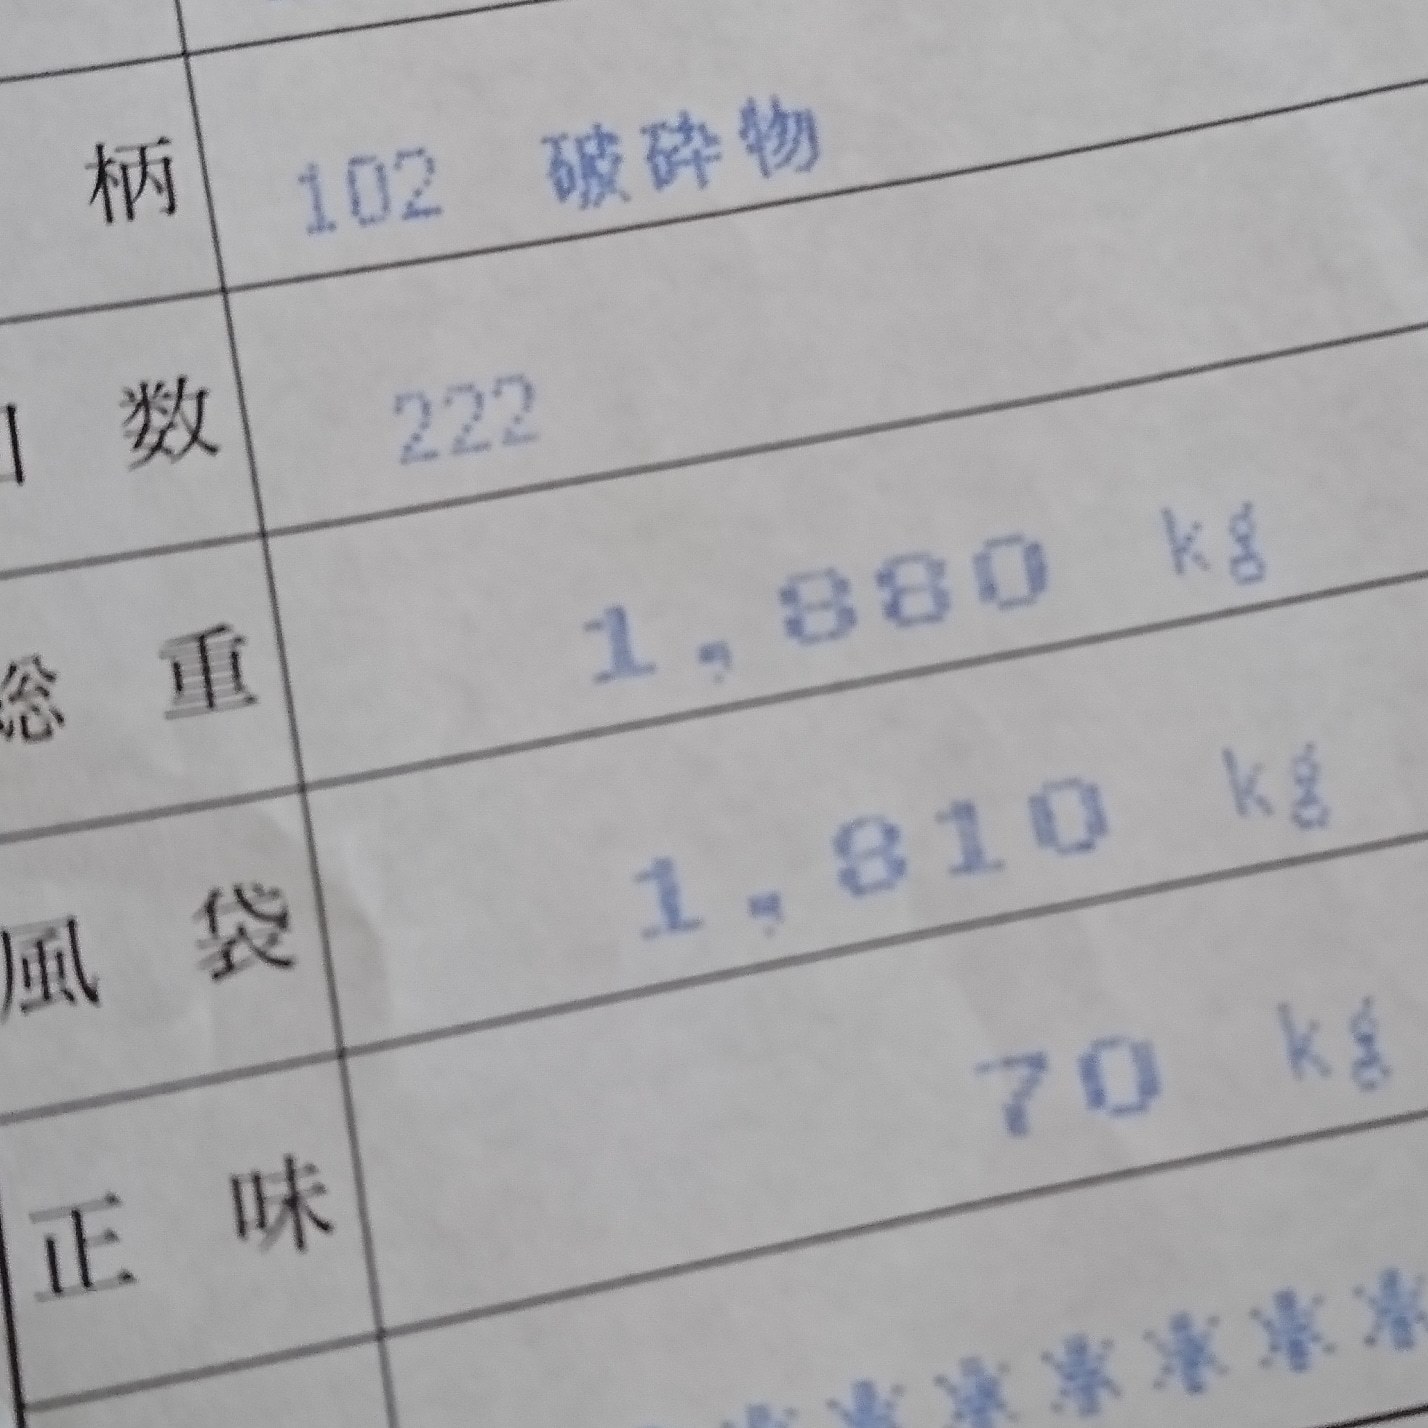 柄 102 破砕物
数 222
総重 1,880 kg
風袋 1,810 kg
正味 70 kg
********